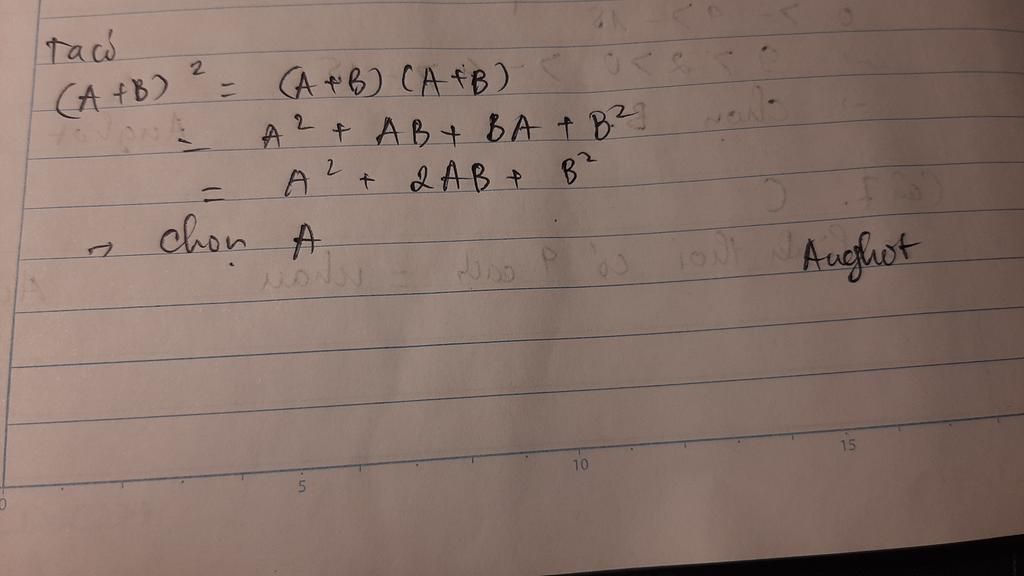 Ta có
(A+B)² = (A+B)(A+B)
= A² + AB + BA + B²
= A² + 2AB + B²
→ Chọn A
Aughot
0 5 10 15